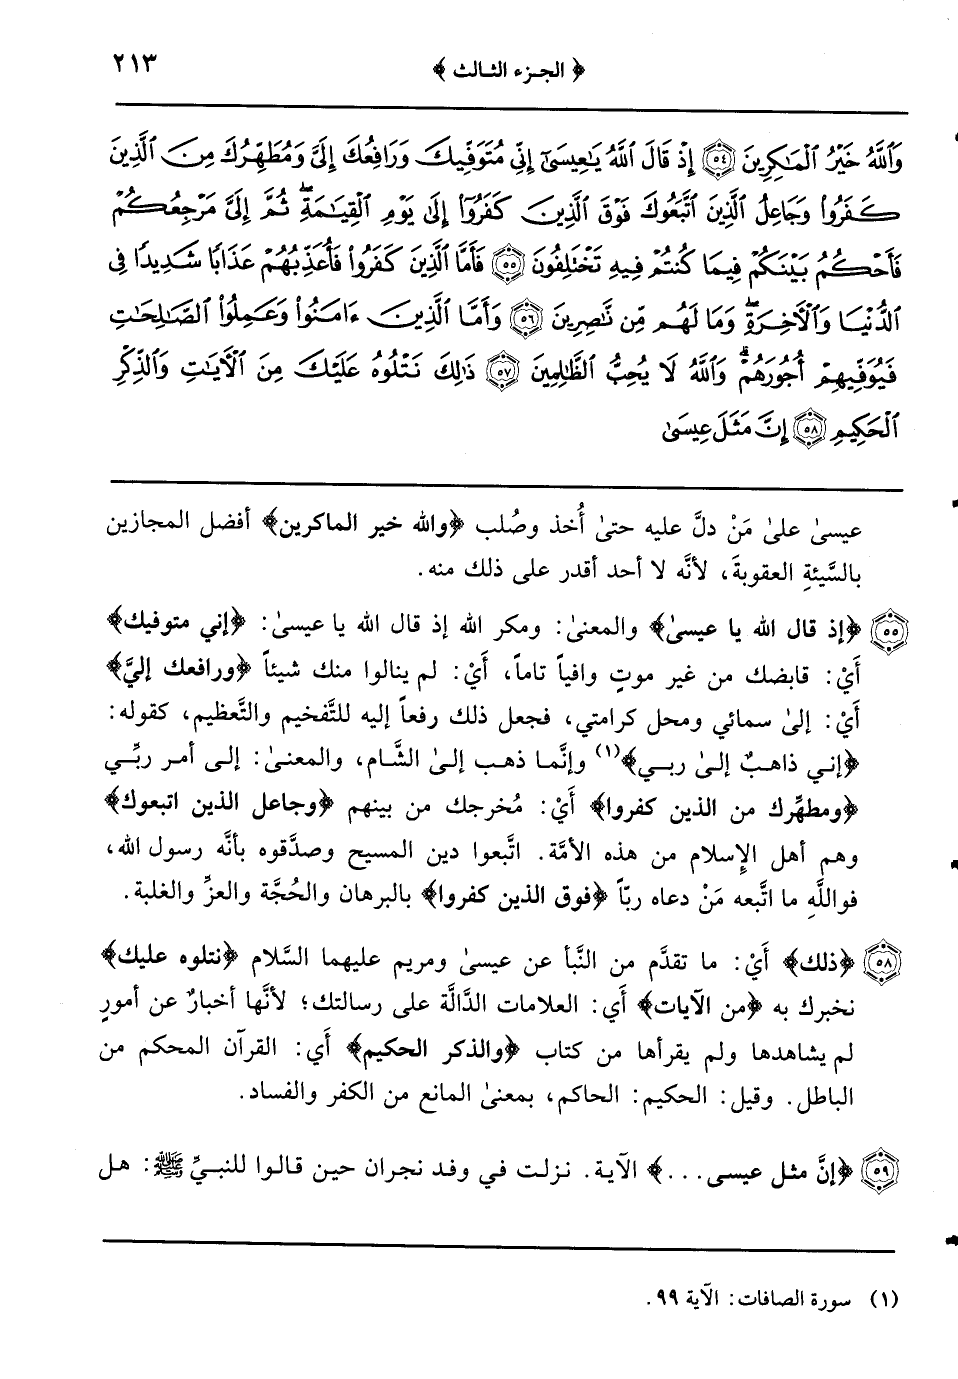 ﴿ الجزء الثالث ﴾ ٢١٣
وَاللَّهُ خَيْرُ الْمَاكِرِينَ ٥٤ إِذْ قَالَ اللَّهُ يَاعِيسَىٰ إِنِّي مُتَوَفِّيكَ وَرَافِعُكَ إِلَيَّ وَمُطَهِّرُكَ مِنَ الَّذِينَ
كَفَرُوا وَجَاعِلُ الَّذِينَ اتَّبَعُوكَ فَوْقَ الَّذِينَ كَفَرُوا إِلَىٰ يَوْمِ الْقِيَامَةِ ۖ ثُمَّ إِلَيَّ مَرْجِعُكُمْ
فَأَحْكُمُ بَيْنَكُمْ فِيمَا كُنْتُمْ فِيهِ تَخْتَلِفُونَ ٥٥ فَأَمَّا الَّذِينَ كَفَرُوا فَأُعَذِّبُهُمْ عَذَابًا شَدِيدًا فِي
الدُّنْيَا وَالْآخِرَةِ ۖ وَمَا لَهُمْ مِّن نَّاصِرِينَ ٥٦ وَأَمَّا الَّذِينَ ءَامَنُوا وَعَمِلُوا الصَّالِحَاتِ
فَيُوَفِّيهِمْ أُجُورَهُمْ ۗ وَاللَّهُ لَا يُحِبُّ الظَّالِمِينَ ٥٧ ذَٰلِكَ نَتْلُوهُ عَلَيْكَ مِنَ الْآيَاتِ وَالذِّكْرِ
الْحَكِيمِ ٥٨ إِنَّ مَثَلَ عِيسَىٰ
عيسىٰ علىٰ مَنْ دلَّ عليه حتىٰ أُخذ وصُلب ﴿والله خير الماكرين﴾ أفضل المجازين
بالسَّيئةِ العقوبةَ، لأنَّه لا أحد أقدر على ذلك منه.
٥٥ ﴿إذ قال الله يا عيسىٰ﴾ والمعنىٰ: ومكر الله إذ قال الله يا عيسىٰ: ﴿إني متوفيك﴾
أَيْ: قابضك من غير موتٍ وافياً تاماً، أَيْ: لم ينالوا منك شيئاً ﴿ورافعك إليَّ﴾
أَيْ: إلىٰ سمائي ومحل كرامتي، فجعل ذلك رفعاً إليه للتَّفخيم والتَّعظيم، كقوله:
﴿إني ذاهبٌ إلىٰ ربي﴾(١) وإنَّما ذهب إلىٰ الشَّام، والمعنىٰ: إلى أمر ربِّي
﴿ومطهِّرك من الذين كفروا﴾ أَيْ: مُخرجك من بينهم ﴿وجاعل الذين اتبعوك﴾
وهم أهل الإِسلام من هذه الأمَّة. اتَّبعوا دين المسيح وصدَّقوه بأنَّه رسول الله،
فواللَّهِ ما اتَّبعه مَنْ دعاه ربّاً ﴿فوق الذين كفروا﴾ بالبرهان والحُجَّة والعزِّ والغلبة.
٥٨ ﴿ذلك﴾ أَيْ: ما تقدَّم من النَّبأ عن عيسىٰ ومريم عليهما السَّلام ﴿نتلوه عليك﴾
نخبرك به ﴿من الآيات﴾ أَي: العلامات الدَّالَّة على رسالتك؛ لأنَّها أخبارٌ عن أمورٍ
لم يشاهدها ولم يقرأها من كتاب ﴿والذكر الحكيم﴾ أَي: القرآن المحكم من
الباطل. وقيل: الحكيم: الحاكم، بمعنىٰ المانع من الكفر والفساد.
٥٩ ﴿إنَّ مثل عيسى...﴾ الآية. نزلت في وفد نجران حين قالوا للنبيِّ ﷺ: هل
(١) سورة الصافات: الآية ٩٩.